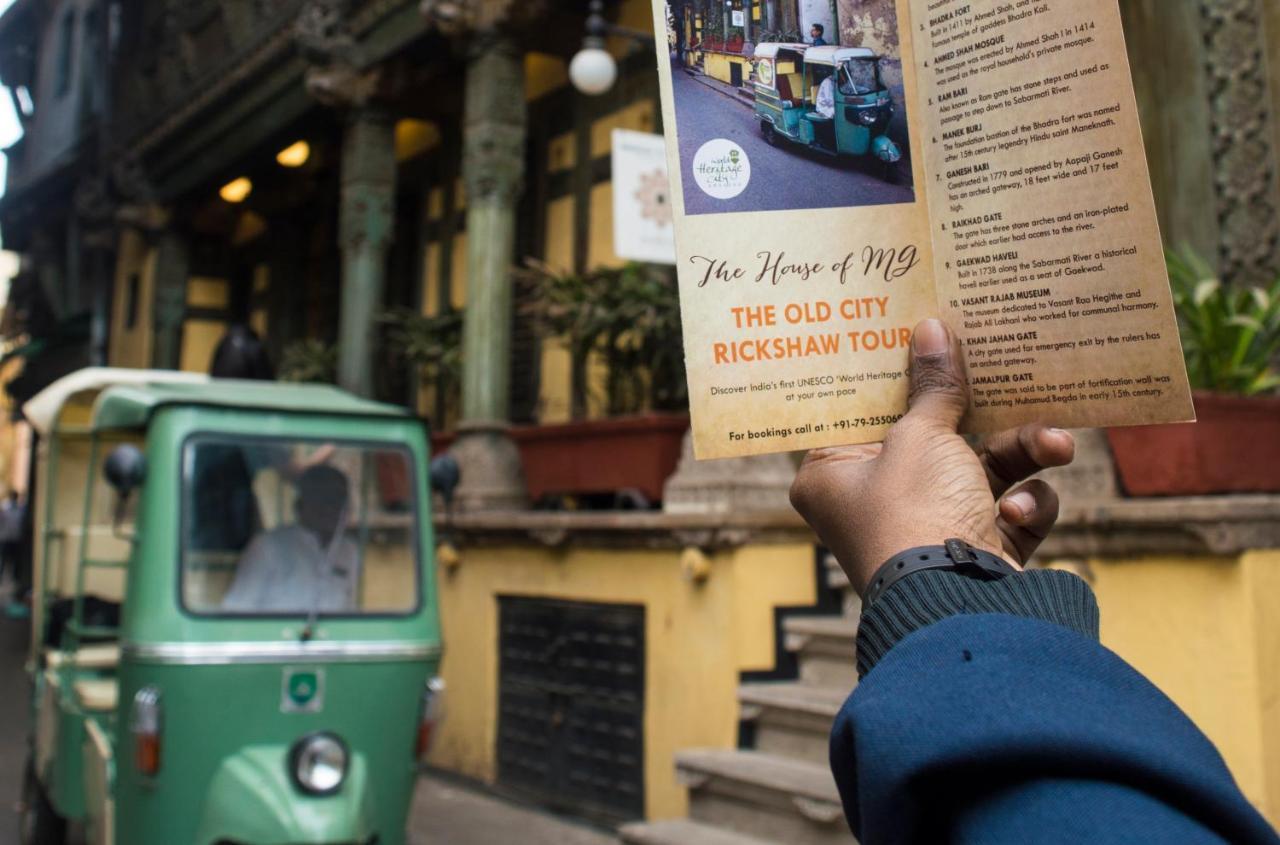 World
Heritage
City
The House of MG
THE OLD CITY
RICKSHAW TOUR
Discover India's first UNESCO 'World Heritage
at your own pace
For bookings call at : +91-79-255069
3. BHADRA FORT
Built in 1411 by Ahmed Shah, and
famous temple of goddess Bhadra Kali.
4. AHMED SHAH MOSQUE
The mosque was erected by Ahmed Shah I in 1414
was used as the royal household's private mosque.
5. RAM BARI
Also known as Ram gate has stone steps and used as
passage to step down to Sabarmati River.
6. MANEK BURJ
The foundation bastion of the Bhadra fort was named
after 15th century legendry Hindu saint Maneknath.
7. GANESH BARI
Constructed in 1779 and opened by Aapaji Ganesh
has an arched gateway, 18 feet wide and 17 feet
high.
8. RAIKHAD GATE
The gate has three stone arches and an iron-plated
door which earlier had access to the river.
9. GAEKWAD HAVELI
Built in 1738 along the Sabarmati River a historical
haveli earlier used as a seat of Gaekwad.
10. VASANT RAJAB MUSEUM
The museum dedicated to Vasant Rao Hegithe and
Rajab Ali Lakhani who worked for communal harmony.
KHAN JAHAN GATE
A city gate used for emergency exit by the rulers has
an arched gateway.
JAMALPUR GATE
The gate was said to be part of fortification wall was
built during Muhamud Begda in early 15th century.